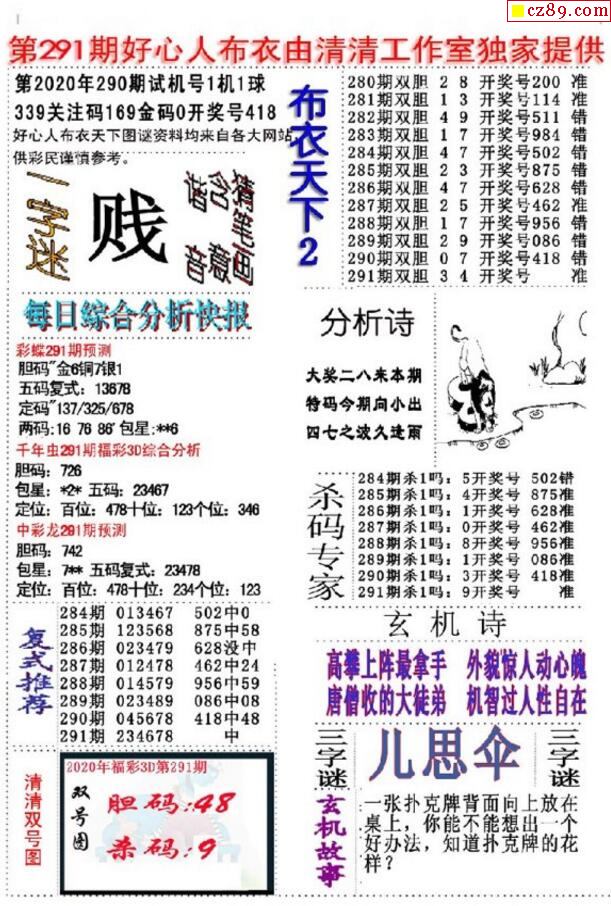 cz89.com
第291期好心人布衣由清清工作室独家提供
第2020年290期试机号1机1球
339关注码169金码0开奖号418
好心人布衣天下图谜资料均来自各大网站
供彩民谨慎参考。
一字迷
贱
猜笔画
含意
谐音
布衣天下2
280期双胆 2 8 开奖号200 准
281期双胆 1 3 开奖号114 准
282期双胆 4 9 开奖号511 错
283期双胆 1 7 开奖号984 错
284期双胆 4 7 开奖号502 错
285期双胆 2 3 开奖号875 错
286期双胆 4 7 开奖号628 错
287期双胆 2 5 开奖号462 准
288期双胆 1 7 开奖号956 错
289期双胆 2 9 开奖号086 错
290期双胆 0 7 开奖号418 错
291期双胆 3 4 开奖号 准
每日綜合分析快报
彩蝶291期预测
胆码"金6铜7银1
五码复式：13678
定码"137/325/678
两码:16 76 86' 包星:**6
千年虫291期福彩3D综合分析
胆码：726
包星：*2* 五码：23467
定位：百位：478十位：123个位：346
中彩龙291期预测
胆码：742
包星：7** 五码复式：23478
定位：百位：478十位：234个位：123
分析诗
大奖二八来本期
特码今期向小出
四七之波久逢雨
杀码专家
284期杀1吗：5开奖号 502错
285期杀1吗：4开奖号 875准
286期杀1吗：1开奖号 628准
287期杀1吗：0开奖号 462准
288期杀1吗：8开奖号 956准
289期杀1吗：1开奖号 086准
290期杀1吗：3开奖号 418准
291期杀1吗：9开奖号 准
复式推荐
284期 013467 502中0
285期 123568 875中58
286期 023479 628没中
287期 012478 462中24
288期 014579 956中59
289期 023489 086中08
290期 045678 418中48
291期 234678 中
玄机诗
高攀上阵最拿手 外貌惊人动心魄
唐僧收的大徒弟 机智过人性自在
三字谜
儿思伞
三字谜
清清双号图
2020年福彩3D第291期
双号图
胆码:48
杀码:9
玄机故事
一张扑克牌背面向上放在
桌上，你能不能想出一个
好办法，知道扑克牌的花
样？